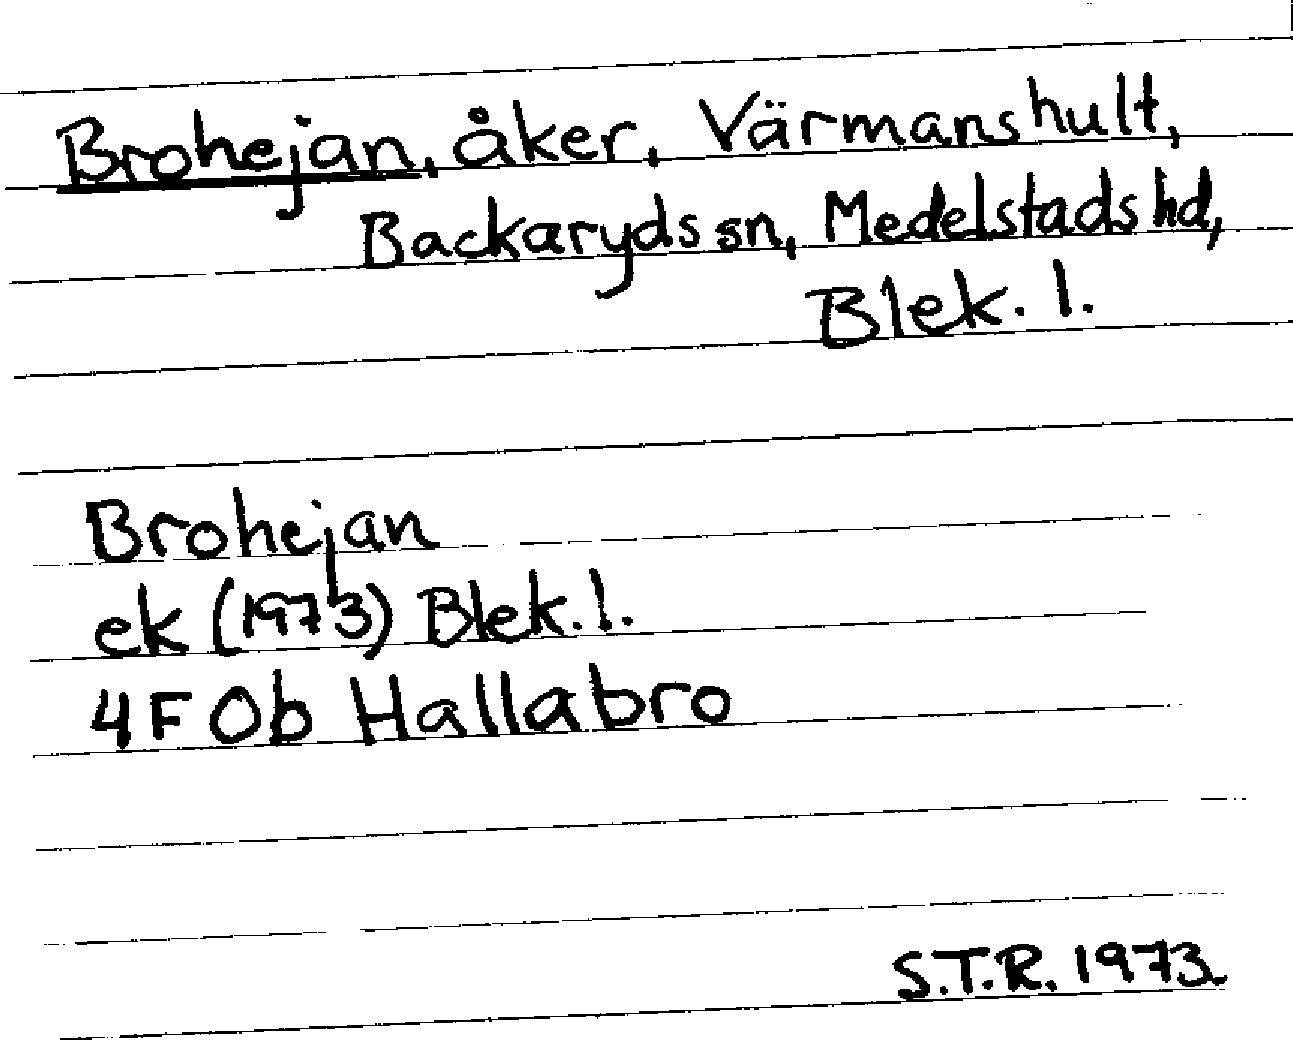 Brohejan, åker, Värmanshult,
Backaryds sn, Medelstads hd,
Blek. l.
Brohejan
ek (1973) Blek. l.
4F Ob Hallabro
S.T.R. 1973.